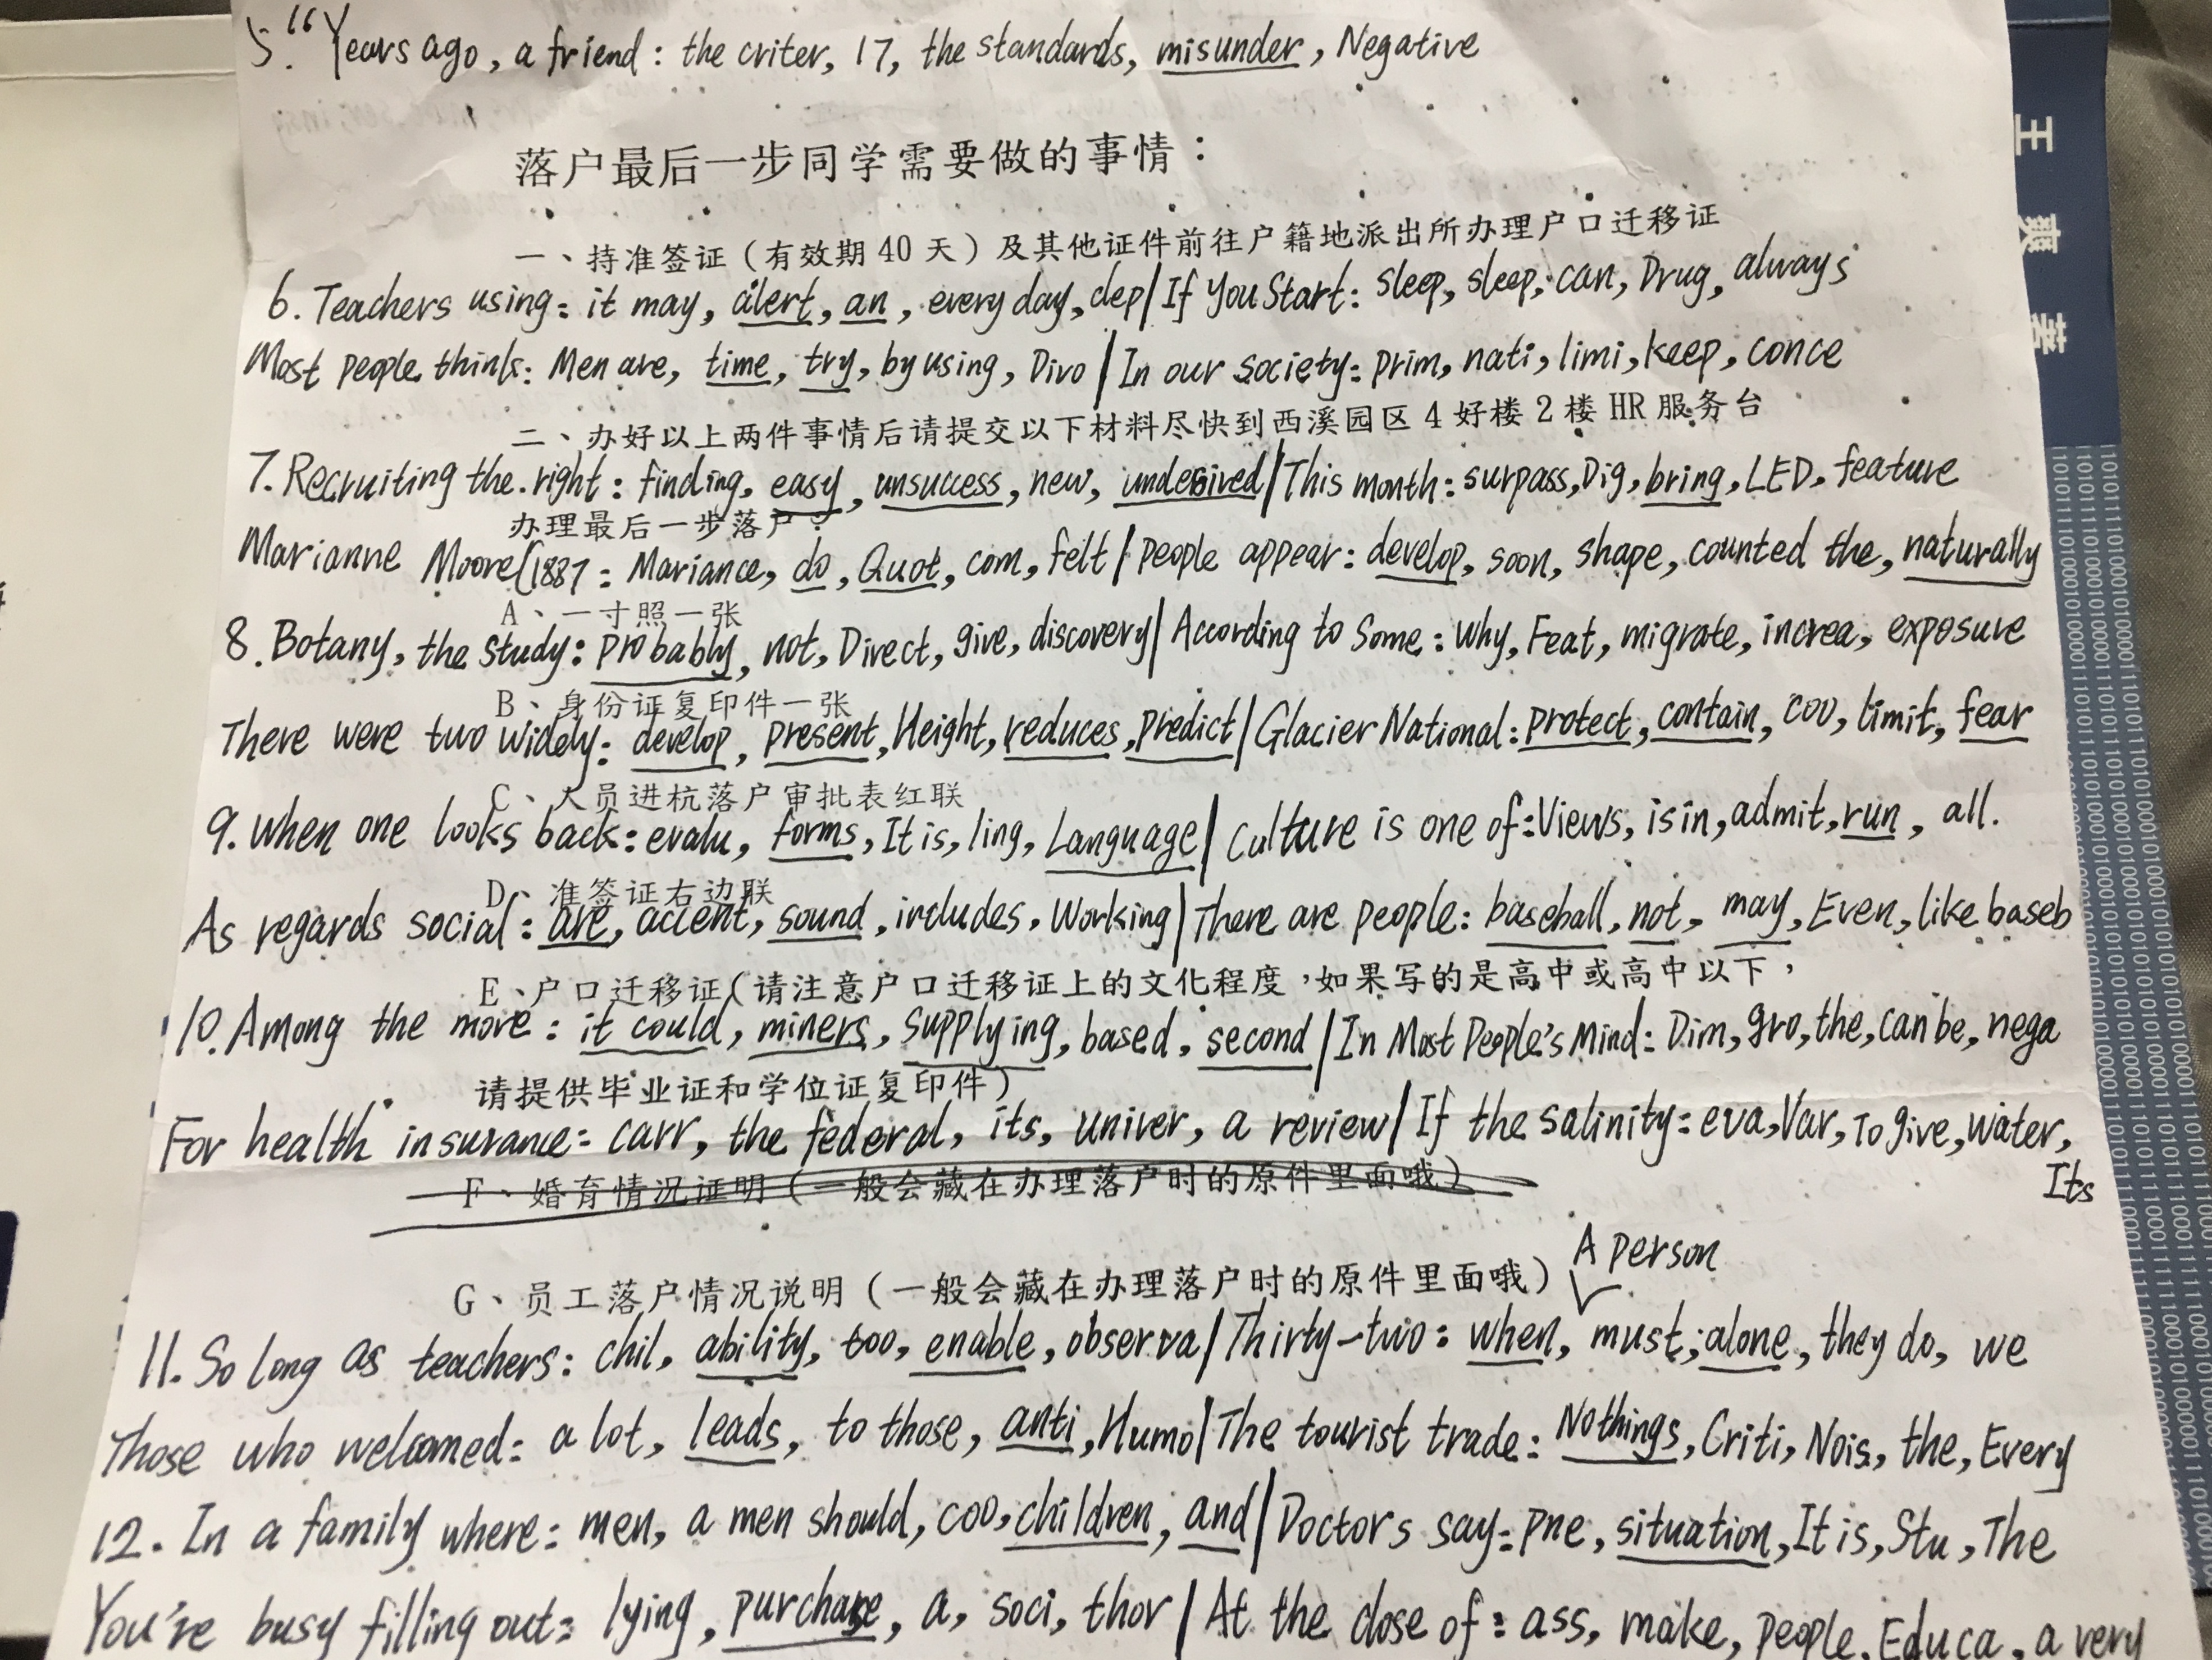 5. "Years ago, a friend: the criter, 17, the standards, misunder, Negative
落户最后一步同学需要做的事情：
一、持准签证（有效期 40 天）及其他证件前往户籍地派出所办理户口迁移证
6. Teachers using: it may, alert, an, every day, dep/If You Start: sleep, sleep, can, Drug, always
Most people thinks: Men are, time, try, by using, Divo/In our society: prim, nati, limi, keep, conce
二、办好以上两件事情后请提交以下材料尽快到西溪园区 4 好楼 2 楼 HR 服务台
7. Recruiting the right: finding, easy, unsuccess, new, undesived/This month: surpass, Dig, bring, LED, feature
办理最后一步落户：
Marianne Moore(1887: Mariance, do, Quot, com, felt/people appear: develop, soon, shape, counted the, naturally
A、一寸照一张
8. Botany, the study: probably, not, Direct, give, discovery/According to Some: Why, Feat, migrate, increa, exposure
B、身份证复印件一张
There were two widely: develop, present, Height, reduces, predict/Glacier National: protect, contain, coo, limit, fear
C、人员进杭落户审批表红联
9. When one looks back: evalu, forms, It is, ling, Language/Culture is one of: Views, is in, admit, run, all.
D、准签证右边联
As regards social: are, accent, sound, includes, Working/There are people: baseball, not, may, Even, like baseb
E、户口迁移证（请注意户口迁移证上的文化程度，如果写的是高中或高中以下，
10. Among the more: it could, miners, supplying, based, second/In Most People's Mind: Dim, gro, the, can be, nega
请提供毕业证和学位证复印件）
For health insurance: carr, the federal, its, univer, a review/If the salinity: eva, Var, To give, water,
Its
F、婚育情况证明（一般会藏在办理落户时的原件里面哦）
A person
G、员工落户情况说明（一般会藏在办理落户时的原件里面哦）
11. So long as teachers: chil, ability, too, enable, observa/Thirty-two: when, must, alone, they do, we
Those who welcomed: a lot, leads, to those, anti, Humo/The tourist trade: Nothings, Criti, Nois, the, Every
12. In a family where: men, a men should, coo, children, and/Doctors say: pne, situation, It is, Stu, The
You're busy filling out: lying, purchase, a, soci, thor/At the close of: ass, make, people, Educa, a very
王爽著